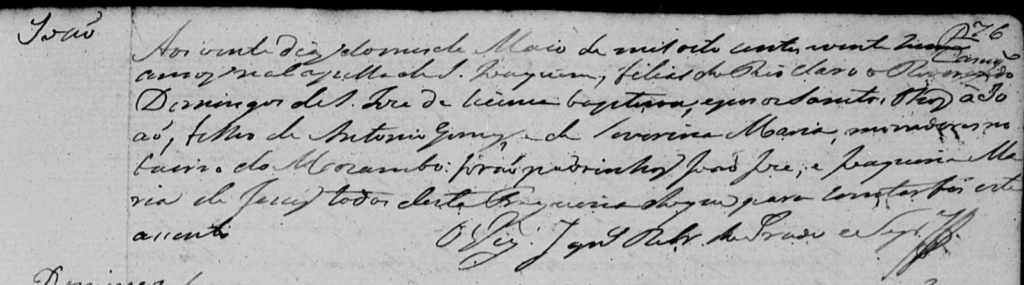 João
Aos vinte dias do mes de Maio de mil oito centos vinte e um
annos na Capella de S. Joaquim, filial do Rio Claro o Reverendo
Domingos de S. José de licença baptisou, e pos os Santos Oleos a Jo
ão, filho de Antonio Gomes e de Severina Maria, moradores no
bairro do Morambo: forão padrinhos João José, e Joaquina Ma
ria de Jesus todos desta Freguesia do que para constar fis este
assento
O Vig.
Domingos